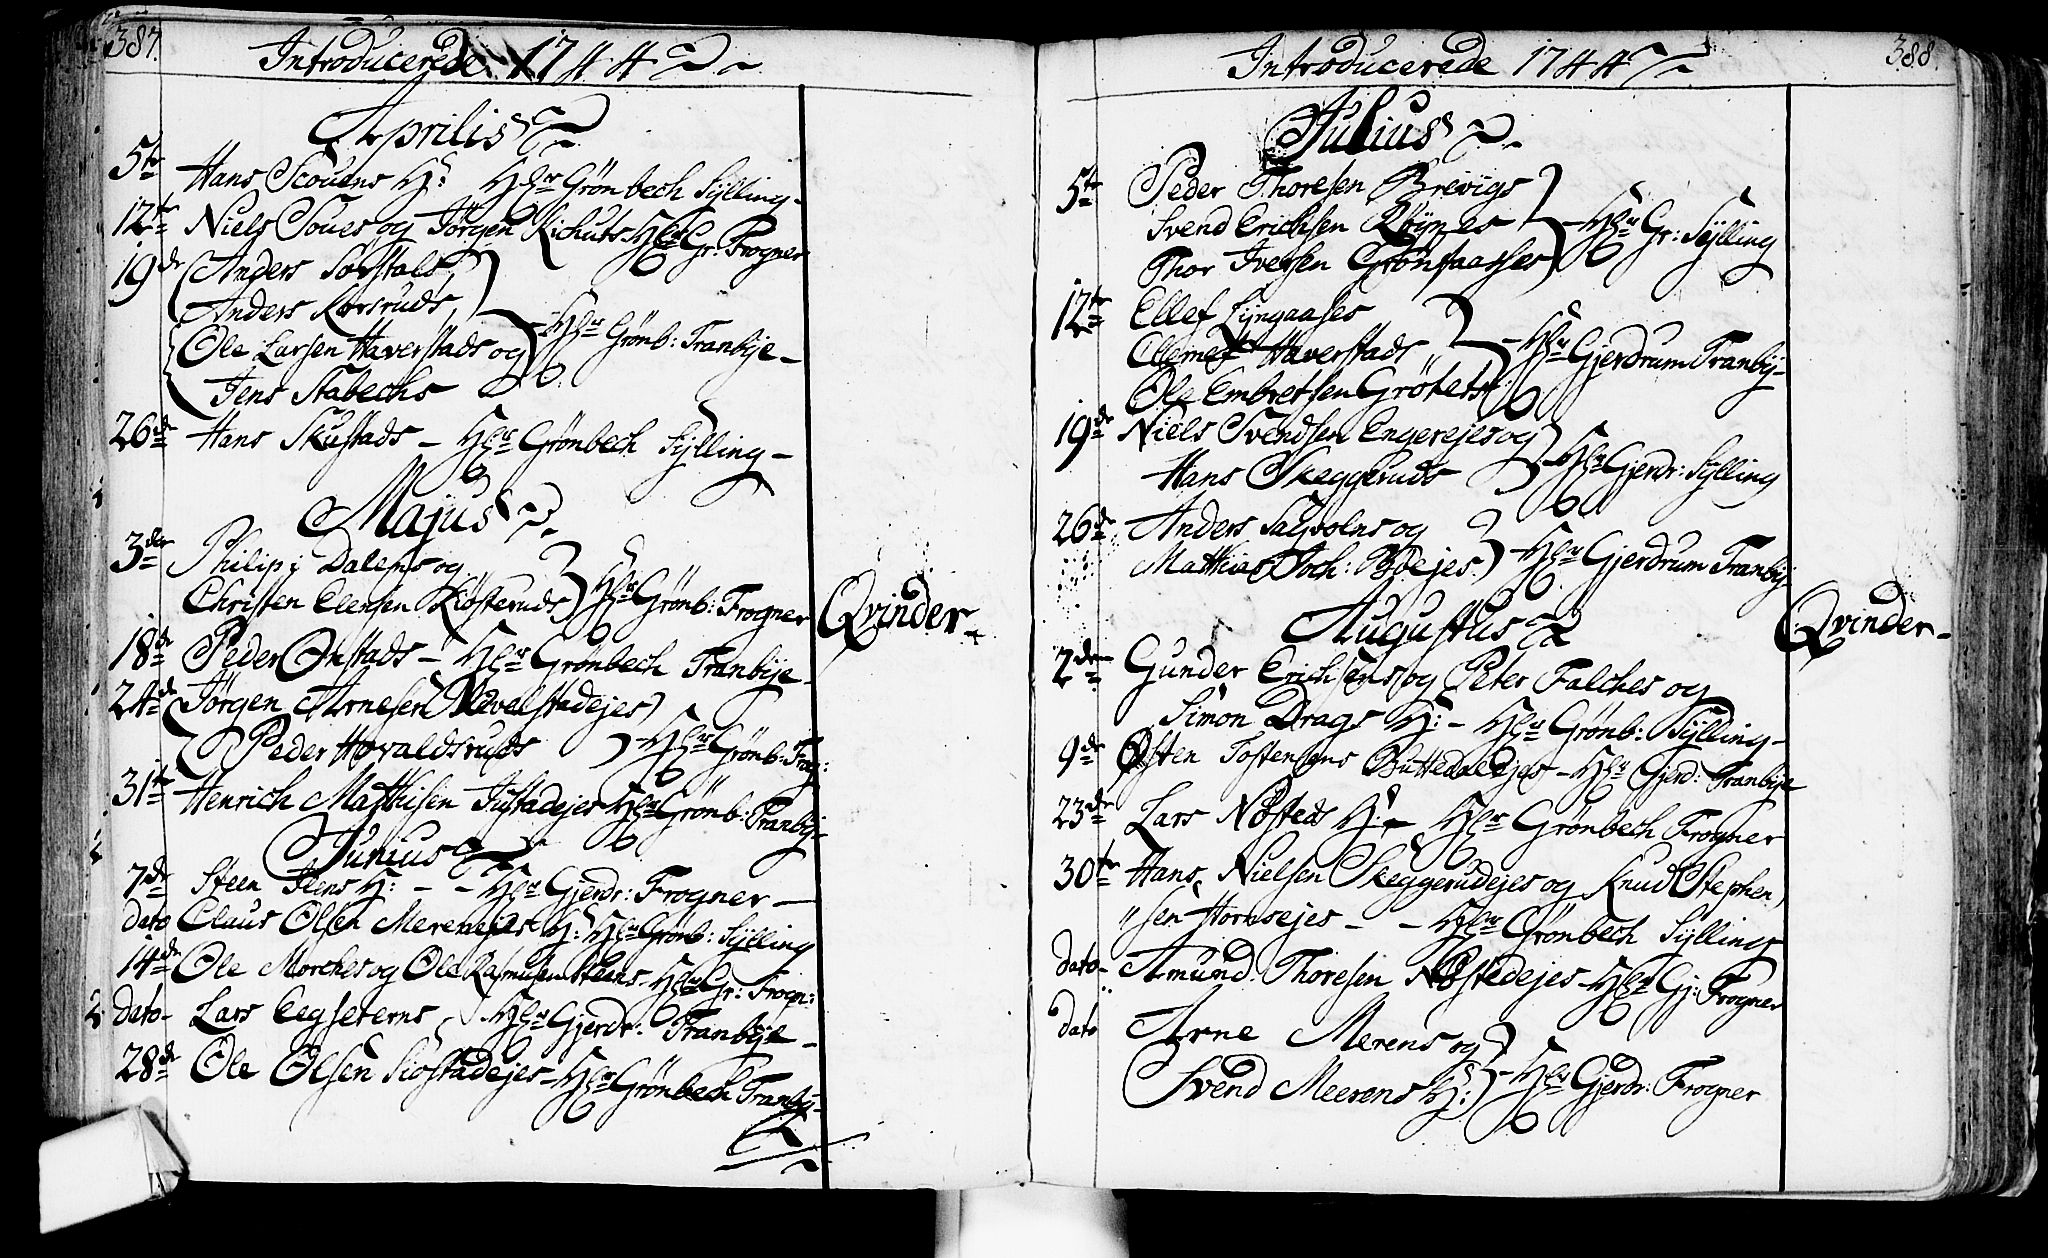 387.
Introducerede 1744
Aprilis
5te Hans Scouens H: Hlr Grönbech Sylling-
12te Niels Soues og Jörgen Kichuts Hlr Gr: Frogner
19de Anders Sorstals,
Anders Korsruds,
Ole Larsen Haverstads og - Hlr Grönb: Tranbye-
Jens Stabechs
26de Hans Skustads - Hlr Grönbech Sylling-
Majus
3die Philip i Dalens og
Christen Elensen Kiösteruds Hlr Grönb: Frogner
18de Peder Onstads - Hlr Grönbech Tranbye-
24de Jörgen Arnesen
Peder Hovaldsruds - Hlr Grönb: Frog:
31te Henrich Matthisen Justadejes Hlr Grönb: Tranbye-
Junius
7de Steen Steens H: - - Hlr Gjerdr: Frogner -
dato Claus Olsen Merenejes H: Hlr Grönb: Sylling
14de Ole Morches og Ole Rasmusen Steens - Hlr Gr: Frogn:
dato- Lars Eegseterns - Hlr Gjerdr: Tranbye-
28de Ole Olsen Siostadejes - Hlr Grönbech Tranby-
Qvinder-
388.
Introducerede 1744
Julius
5te Peder Thoresen Brevigs
Svend Erichsen
Thor Iversen Grönsaasses - Hlr Gr: Sylling
12te Ellef Lyngaases
Clemet Haverstads
Ole Embretsen Grötets - Hlr Gjerdrum Tranby-
19de Niels Svendsen Engerejes og
Hans Skeggeruds - Hlr Gjerdr: Sylling
26de Anders Salvolns og
Matthias Joch: Bödejes - Hlr Gjerdrum Tranby
Augustus
2den Gunder Erichsens og Peter Falches og
Simon Drags H: - Hlr Grönb: Sylling-
9de Østen Tostensens Buttedalejes - Hlr Gjerd: Tranbye
23de Lars Nösteds H: - Hlr Grönbech Frogner
30te Hans Nielsen Skeggerudejes og Knud Stephen,
"sen Hornsejes - - Hlr Grönbech Sylling
dato- Amund Thoresen Nöstedejes - Hlr Gj: Frogner
dato Arne Merens og
Svend Meerens H: - Hlr Gjerdr: Frogner
Qvinder-